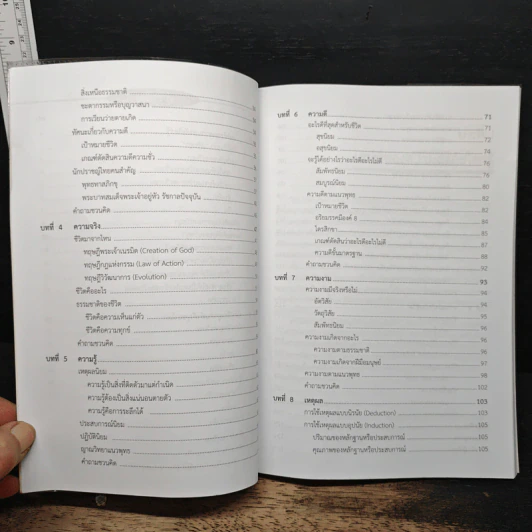 สิ่งเหนือธรรมชาติ
ชะตากรรมหรือบุญวาสนา
การเวียนว่ายตายเกิด
ทัศนะเกี่ยวกับความดี
เป้าหมายชีวิต
เกณฑ์ตัดสินความดีความชั่ว
นักปราชญ์ไทยคนสำคัญ
พุทธทาสภิกขุ
พระบาทสมเด็จพระเจ้าอยู่หัว รัชกาลปัจจุบัน
คำถามชวนคิด
บทที่ 4 ความจริง
ชีวิตมาจากไหน
ทฤษฎีพระเจ้าเนรมิต (Creation of God)
ทฤษฎีกฎแห่งกรรม (Law of Action)
ทฤษฎีวิวัฒนาการ (Evolution)
ชีวิตคืออะไร
ธรรมชาติของชีวิต
ชีวิตคือความเห็นแก่ตัว
ชีวิตคือความทุกข์
คำถามชวนคิด
บทที่ 5 ความรู้
เหตุผลนิยม
ความรู้เป็นสิ่งที่ติดตัวมาแต่กำเนิด
ความรู้ต้องเป็นสิ่งแน่นอนตายตัว
ความรู้คือการระลึกได้
ประสบการณ์นิยม
ปฏิบัตินิยม
ญาณวิทยาแนวพุทธ
คำถามชวนคิด
บทที่ 6 ความดี 71
อะไรดีที่สุดสำหรับชีวิต 71
สุขนิยม 72
อสุขนิยม 74
จะรู้ได้อย่างไรว่าอะไรดีอะไรไม่ดี 76
สัมพัทธนิยม 76
สมบูรณ์นิยม 80
ความดีตามแนวพุทธ 82
เป้าหมายชีวิต 82
อริยมรรคมีองค์ 8 84
ไตรสิกขา 85
เกณฑ์ตัดสินว่าอะไรดีอะไรไม่ดี 87
ความดีขั้นมาตรฐาน 88
คำถามชวนคิด 92
บทที่ 7 ความงาม 93
ความงามมีจริงหรือไม่ 94
อัตวิสัย 94
วัตถุวิสัย 95
สัมพัทธนิยม 96
ความงามเกิดจากอะไร 96
ความงามตามธรรมชาติ 96
ความงามเกิดจากฝีมือมนุษย์ 96
ความงามตามแนวพุทธ 98
คำถามชวนคิด 102
บทที่ 8 เหตุผล 103
การใช้เหตุผลแบบนิรนัย (Deduction) 103
การใช้เหตุผลแบบอุปนัย (Induction) 105
ปริมาณของหลักฐานหรือประสบการณ์ 105
คุณภาพของหลักฐานหรือประสบการณ์ 105